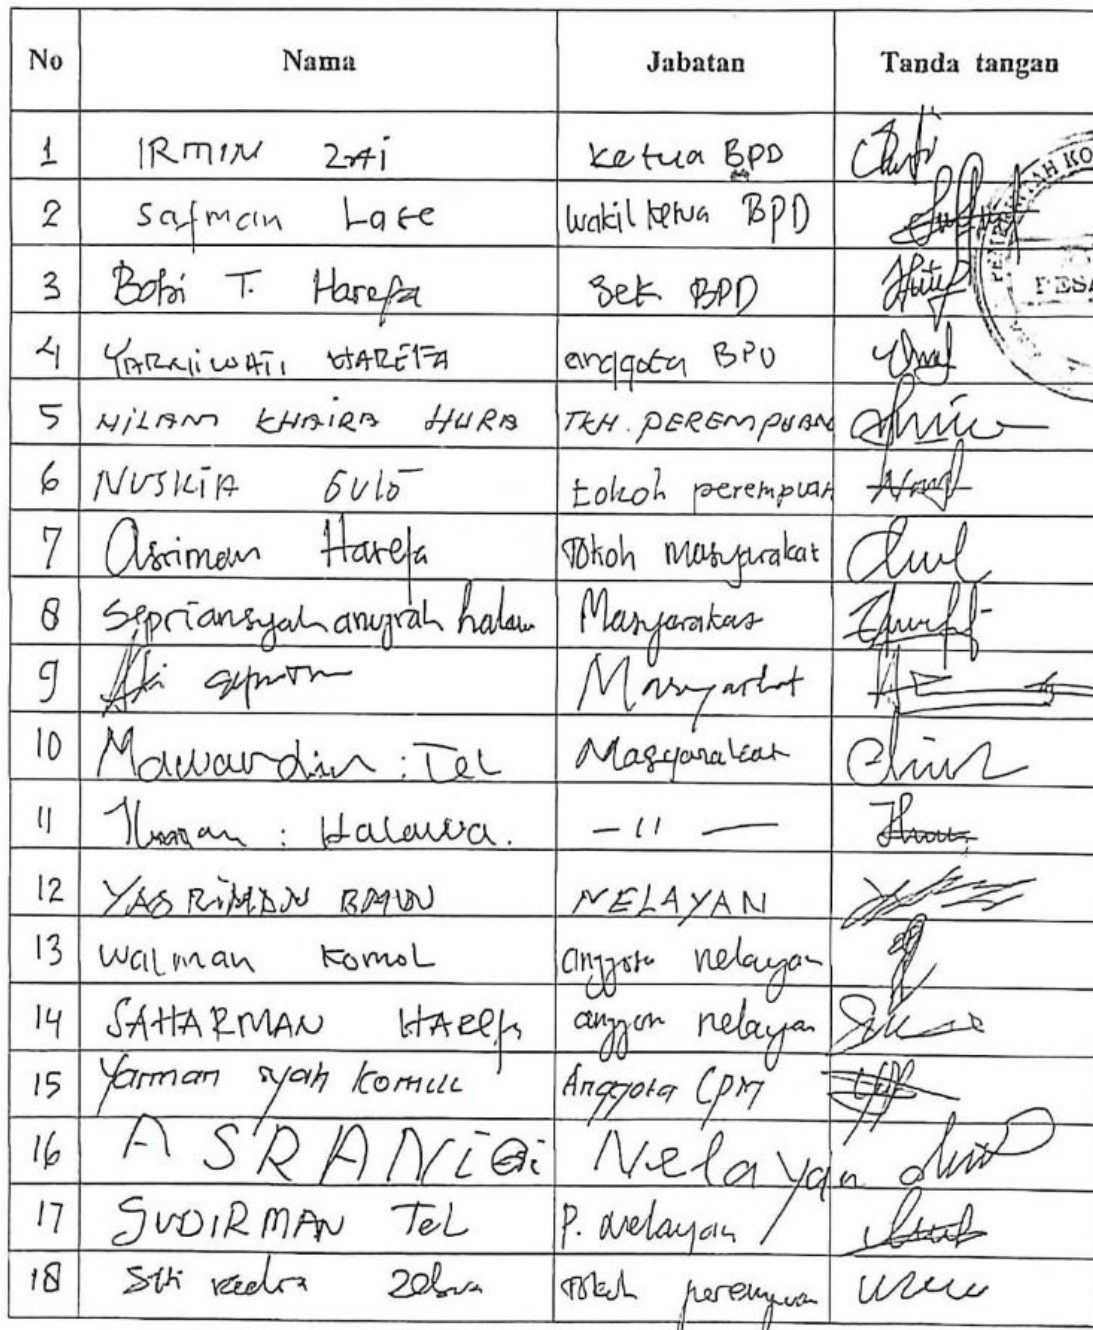 No Nama Jabatan Tanda tangan
1 IRMIN ZAi ketua BPD
2 Safman Lase wakil ketua BPD
3 Bobi T. Harefa Sek BPD
4 HAREFA anggota BPD
5 NiLAM KHAIRA HURA TKH. PEREMPUAN
6 NUSKiA GULÖ tokoh perempuan
7 Asriman Harefa Tokoh masyarakat
8 Sepriansyah anugrah Masyarakat
9 Masyarakat
10 : Tel Masyarakat
11 : Halawa. - 11 -
12 YASRiMAN NELAYAN
13 Walman Komol anggota nelayan
14 SAHARMAN HAREfa anggota nelayan
15 Yarman syah Anggota CPM
16 ASRANi Nelayan
17 SUDIRMAN Tel P. Nelayan
18 Siti Tokoh perempuan